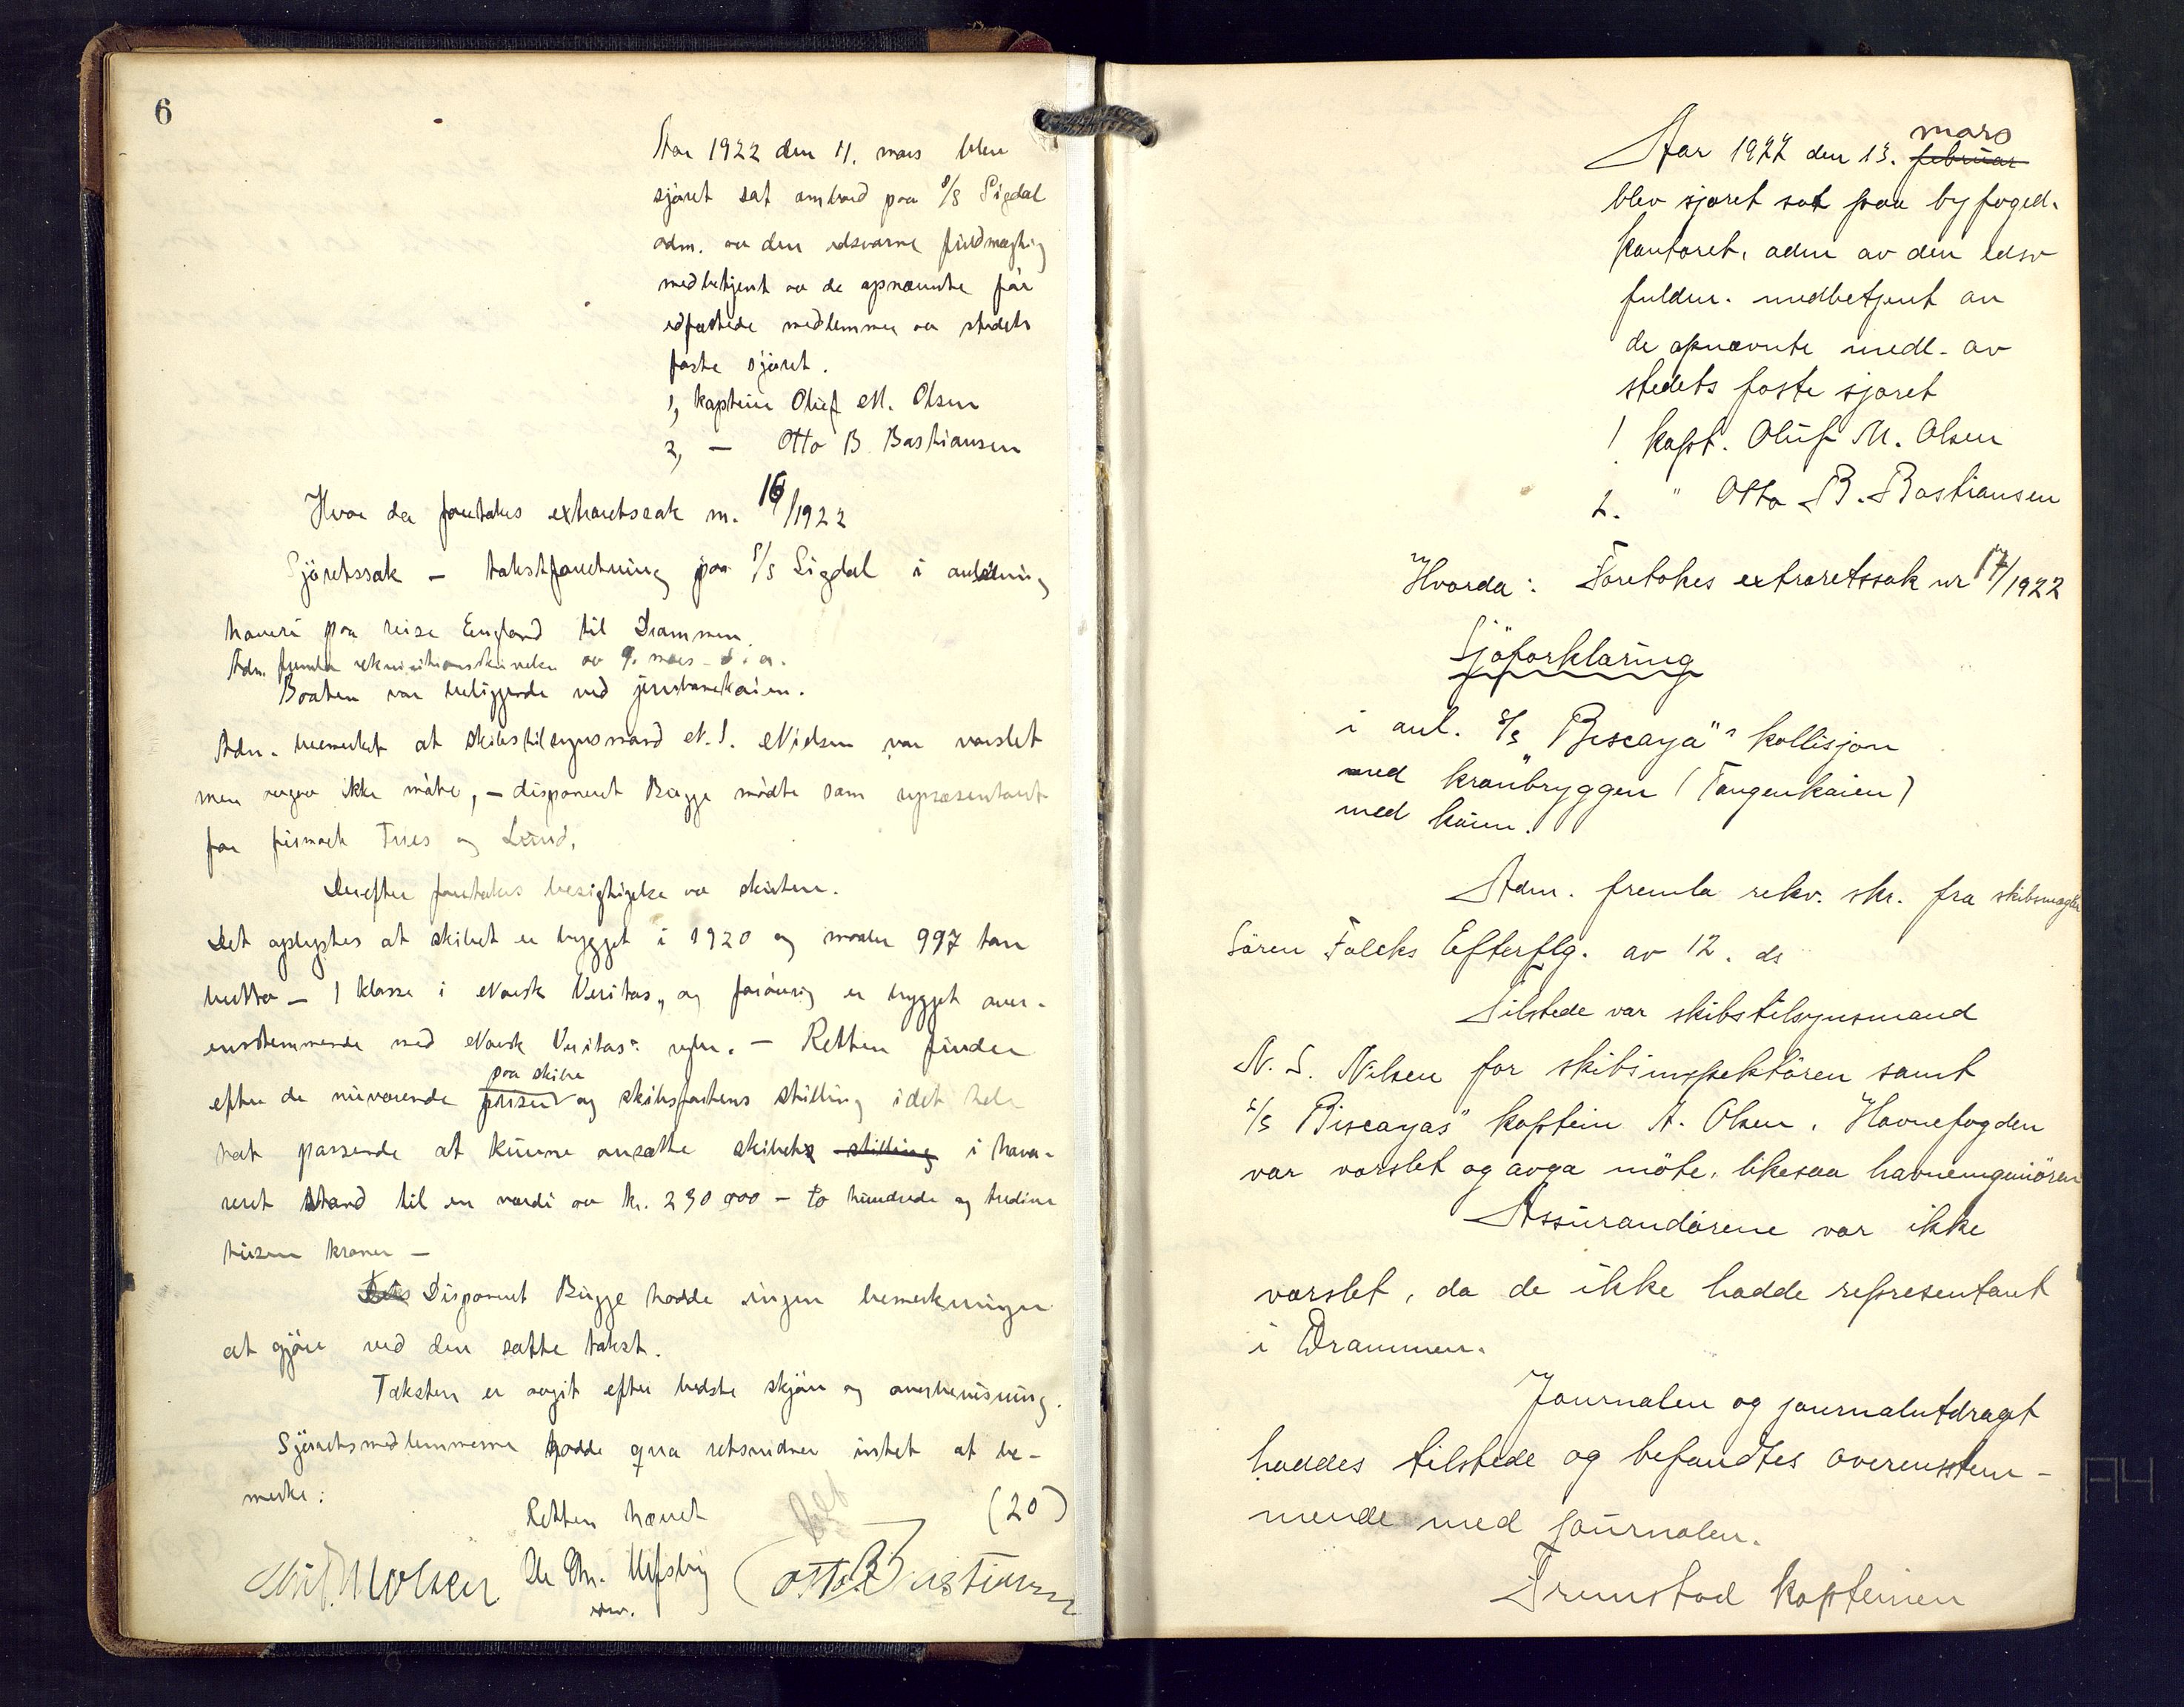 6
Aar 1922 den 11. mars blev
sjøret sat ombord paa S/S Sigdal
adm. av den edsvorne fuldmægtig
medbetjent av de opnævnte før
edfæstede medlemmer av stedets
faste sjøret.
1, kaptein Oluf M. Olsen
2, — Otto B. Bastiansen
Hvor da foretokes extraretssak nr. 16/1922
Sjøretssak — takstforretning paa S/S Sigdal i anledning
haveri paa reise England til Drammen.
Adm. fremla rekvisitionsskrivelse av 9. mars d. a.
Baaten var beliggende ved jernbanekaien.
Adm. bemerket at skibstilsynsmand N. S. Nielsen var varslet
men avgav ikke møte, — disponent Bugge mødte som repræsentant
for firmaet Fries og Lund.
Derefter foretokes besigtigelse av skuten.
Det oplystes at skibet er bygget i 1920 og maaler 997 ton
brutto — 1 klasse i Norsk Veritas, og forøvrig er bygget over-
enstemmende med Norsk Veritas' regler. — Retten finder
paa skibe
efter de nuværende priser og skibsfartens stilling i det hele
tat passende at kunne ansætte skibets stilling i hava-
reret stand til en værdi av kr. 230,000 — to hundrede og tredive
tusen kroner —
Disponent Bugge hadde ingen bemerkninger
at gjøre ved den satte takst.
Taksten er avgit efter bedste skjøn og overbevisning.
Sjøretsmedlemmerne hadde qua retsvidner intet at be-
merke:
Retten hævet
(20)
Oluf M Olsen
Otto B Bastiansen
Aar 1922 den 13. februar
mars
blev sjøret sat paa byfoged-
kontoret, adm av den edsv
fuldm. medbetjent av
de opnævnte medl. av
stedets faste sjøret
1 kapt. Oluf M. Olsen
2. " Otto B. Bastiansen
Hvorda: Foretokes extraretssak nr 17/1922
Sjöforklaring
i anl. S/S "Biscaya"s kollisjon
med kranbryggen (Tangenkaien)
med kaien.
Adm. fremla rekv. skr. fra skibsmægler
Sören Falcks Efterflg. av 12. ds
Tilstede var skibstilsynsmand
N. S. Nilsen for skibsinspektören samt
S/S "Biscayas" kaptein A. Olsen. Havnefogden
var varslet og avga möte, likesaa havneingeniören
Assurandörene var ikke
varslet, da de ikke hadde representant
i Drammen.
Journalen og journalutdraget
haddes tilstede og befandtes overensstem-
mende med journalen.
Fremstod kapteinen